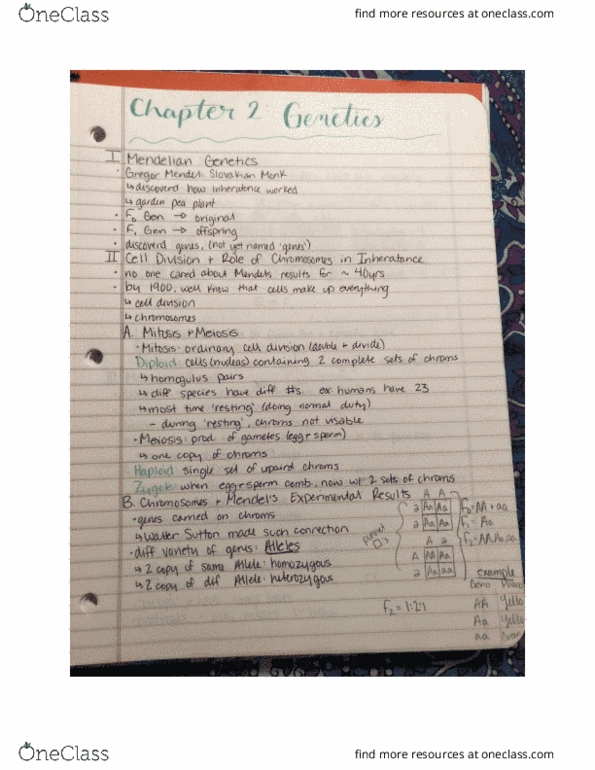 OneClass
find more resources at oneclass.com
Chapter 2: Genetics
I Mendelian Genetics
· Gregor Mendel: Slovakian Monk
↳ discoverd how inheratence worked
↳ garden pea plant
· F₀ Gen → original
· F₁ Gen → offspring
· discoverd genes, (not yet named 'genes')
II Cell Division + Role of Chromosomes in Inheratance
· no one cared about Mendels results for ~ 40yrs
· by 1900, well know that cells make up everything
↳ cell division
↳ chromosomes
A. Mitosis + Meiosis
· Mitosis: ordinary cell division (double + divide)
Diploid: cells (nucleas) containing 2 complete sets of chroms
↳ homogulus pairs
↳ diff species have diff #s. ex: humans have 23
↳ most time 'resting' (doing normal duty)
- during 'resting', chroms not visable
· Meiosis: prod. of gametes (egg + sperm)
↳ one copy of chroms
Haploid: single set of upaird chroms
Zygote: when egg + sperm comb, now w/ 2 sets of chroms
B. Chromosomes + Mendel's Experimental Results
· genes carried on chroms
↳ Walter Sutton made such connection
· diff variety of genes: Alleles
↳ 2 copy of same Allele: homozygous
↳ 2 copy of dif Allele: heterozygous
A A
a Aa Aa
a Aa Aa
A a
A AA Aa
a Aa aa
F₀=AA+aa
F₁=Aa
F₂ = 1:2:1
example
AA Yello
Aa Yello
aa
OneClass
find more resources at oneclass.com